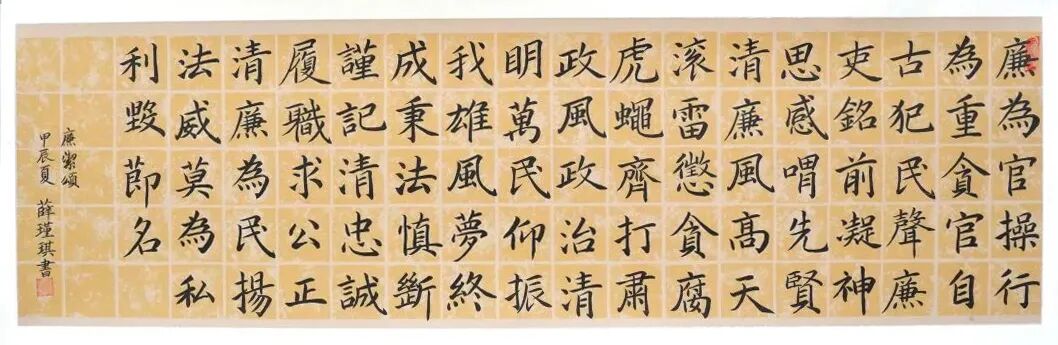 廉為官操行
為重貪官自
古犯民聲廉
吏銘前凝神
思感喟先賢
清廉風髙天
滚雷懲貪腐
虎蠅齊打肅
政風政治清
眀萬民仰振
我雄風夢終
成秉法慎斷
謹記清忠誠
履職求公正
清廉為民揚
法威莫為私
利毀節名
廉潔頌
甲辰夏 薛瑾琪書